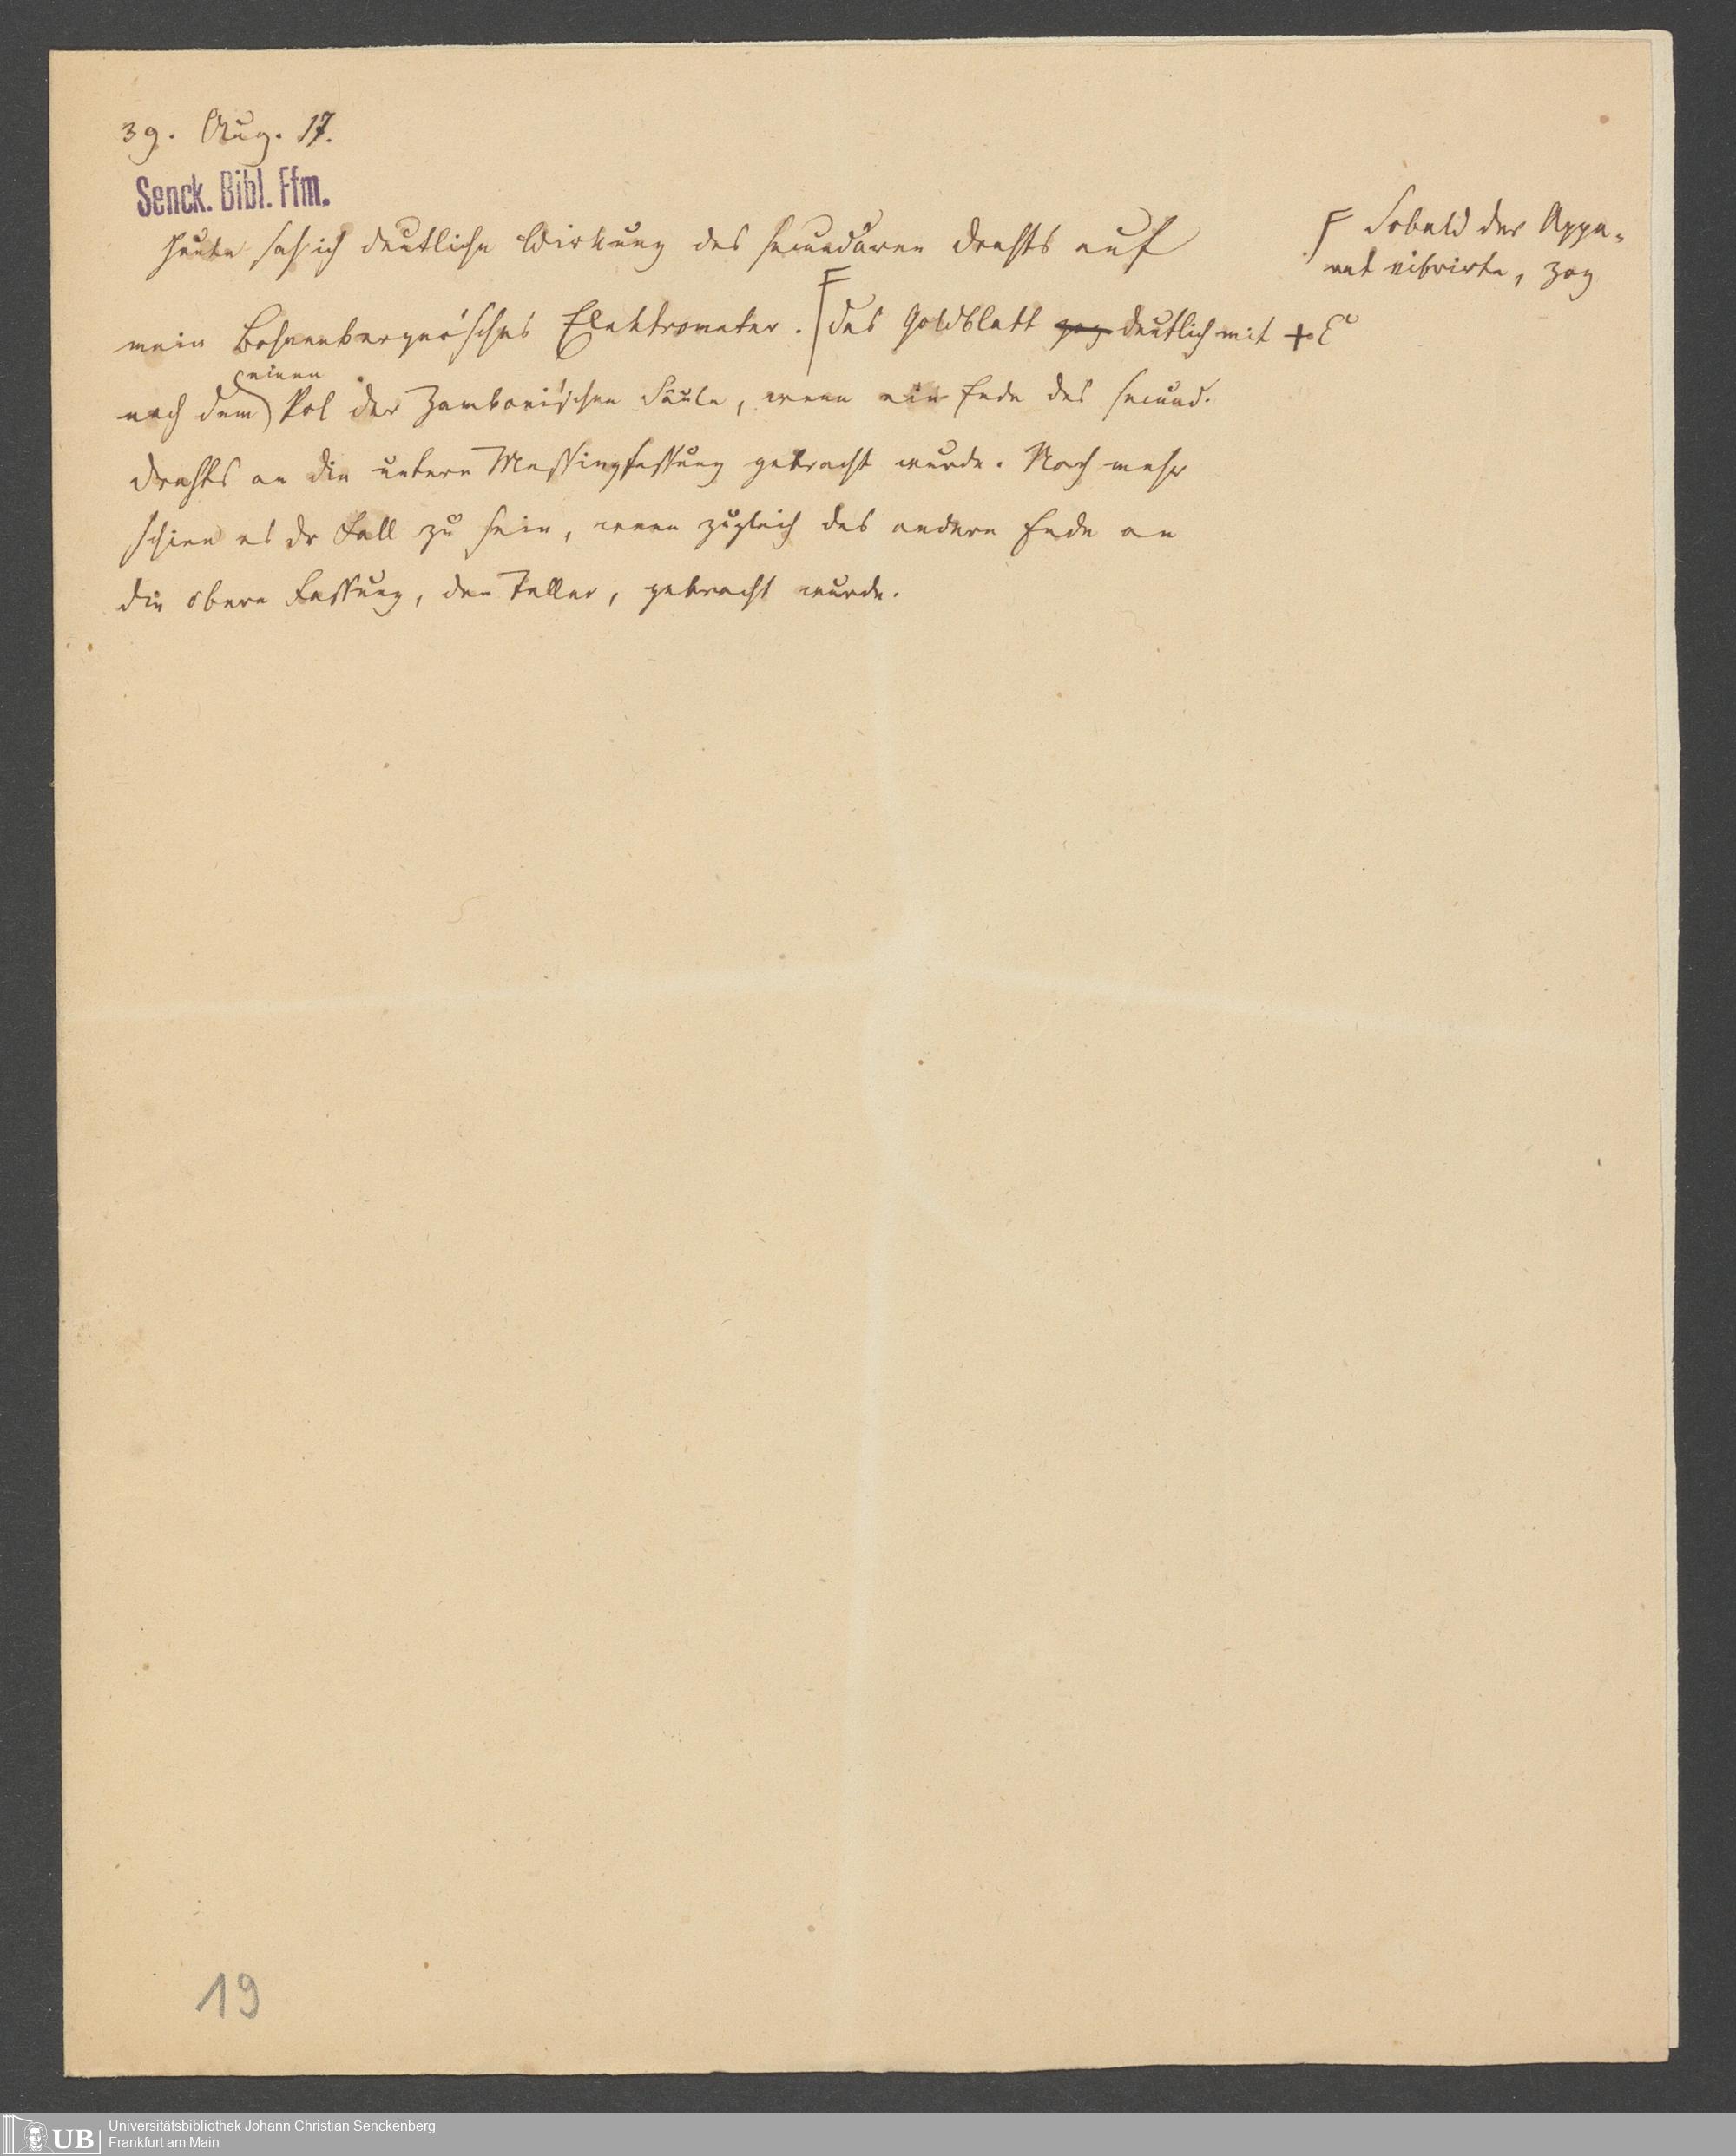 39. Aug. 17.
Senck. Bibl. Ffm.
Heute sah ich deutliche Wirkung des secundären Drahts auf
mein Bohnenberger'sches Elektrometer. ⌈das Goldblatt zog deutlich mit + E
⌈ Sobald der Appa-
rat vibrirte, zog
einen
nach dem Pol der Zamboni'schen Säule, wenn ein Ende des secund.
Drahts an die untere Messingfassung gebracht wurde. Noch mehr
schien es dr Fall zu sein, wenn zugleich das andere Ende an
die obere Fassung, den Teller, gebracht wurde.
19
UB
Universitätsbibliothek Johann Christian Senckenberg
Frankfurt am Main